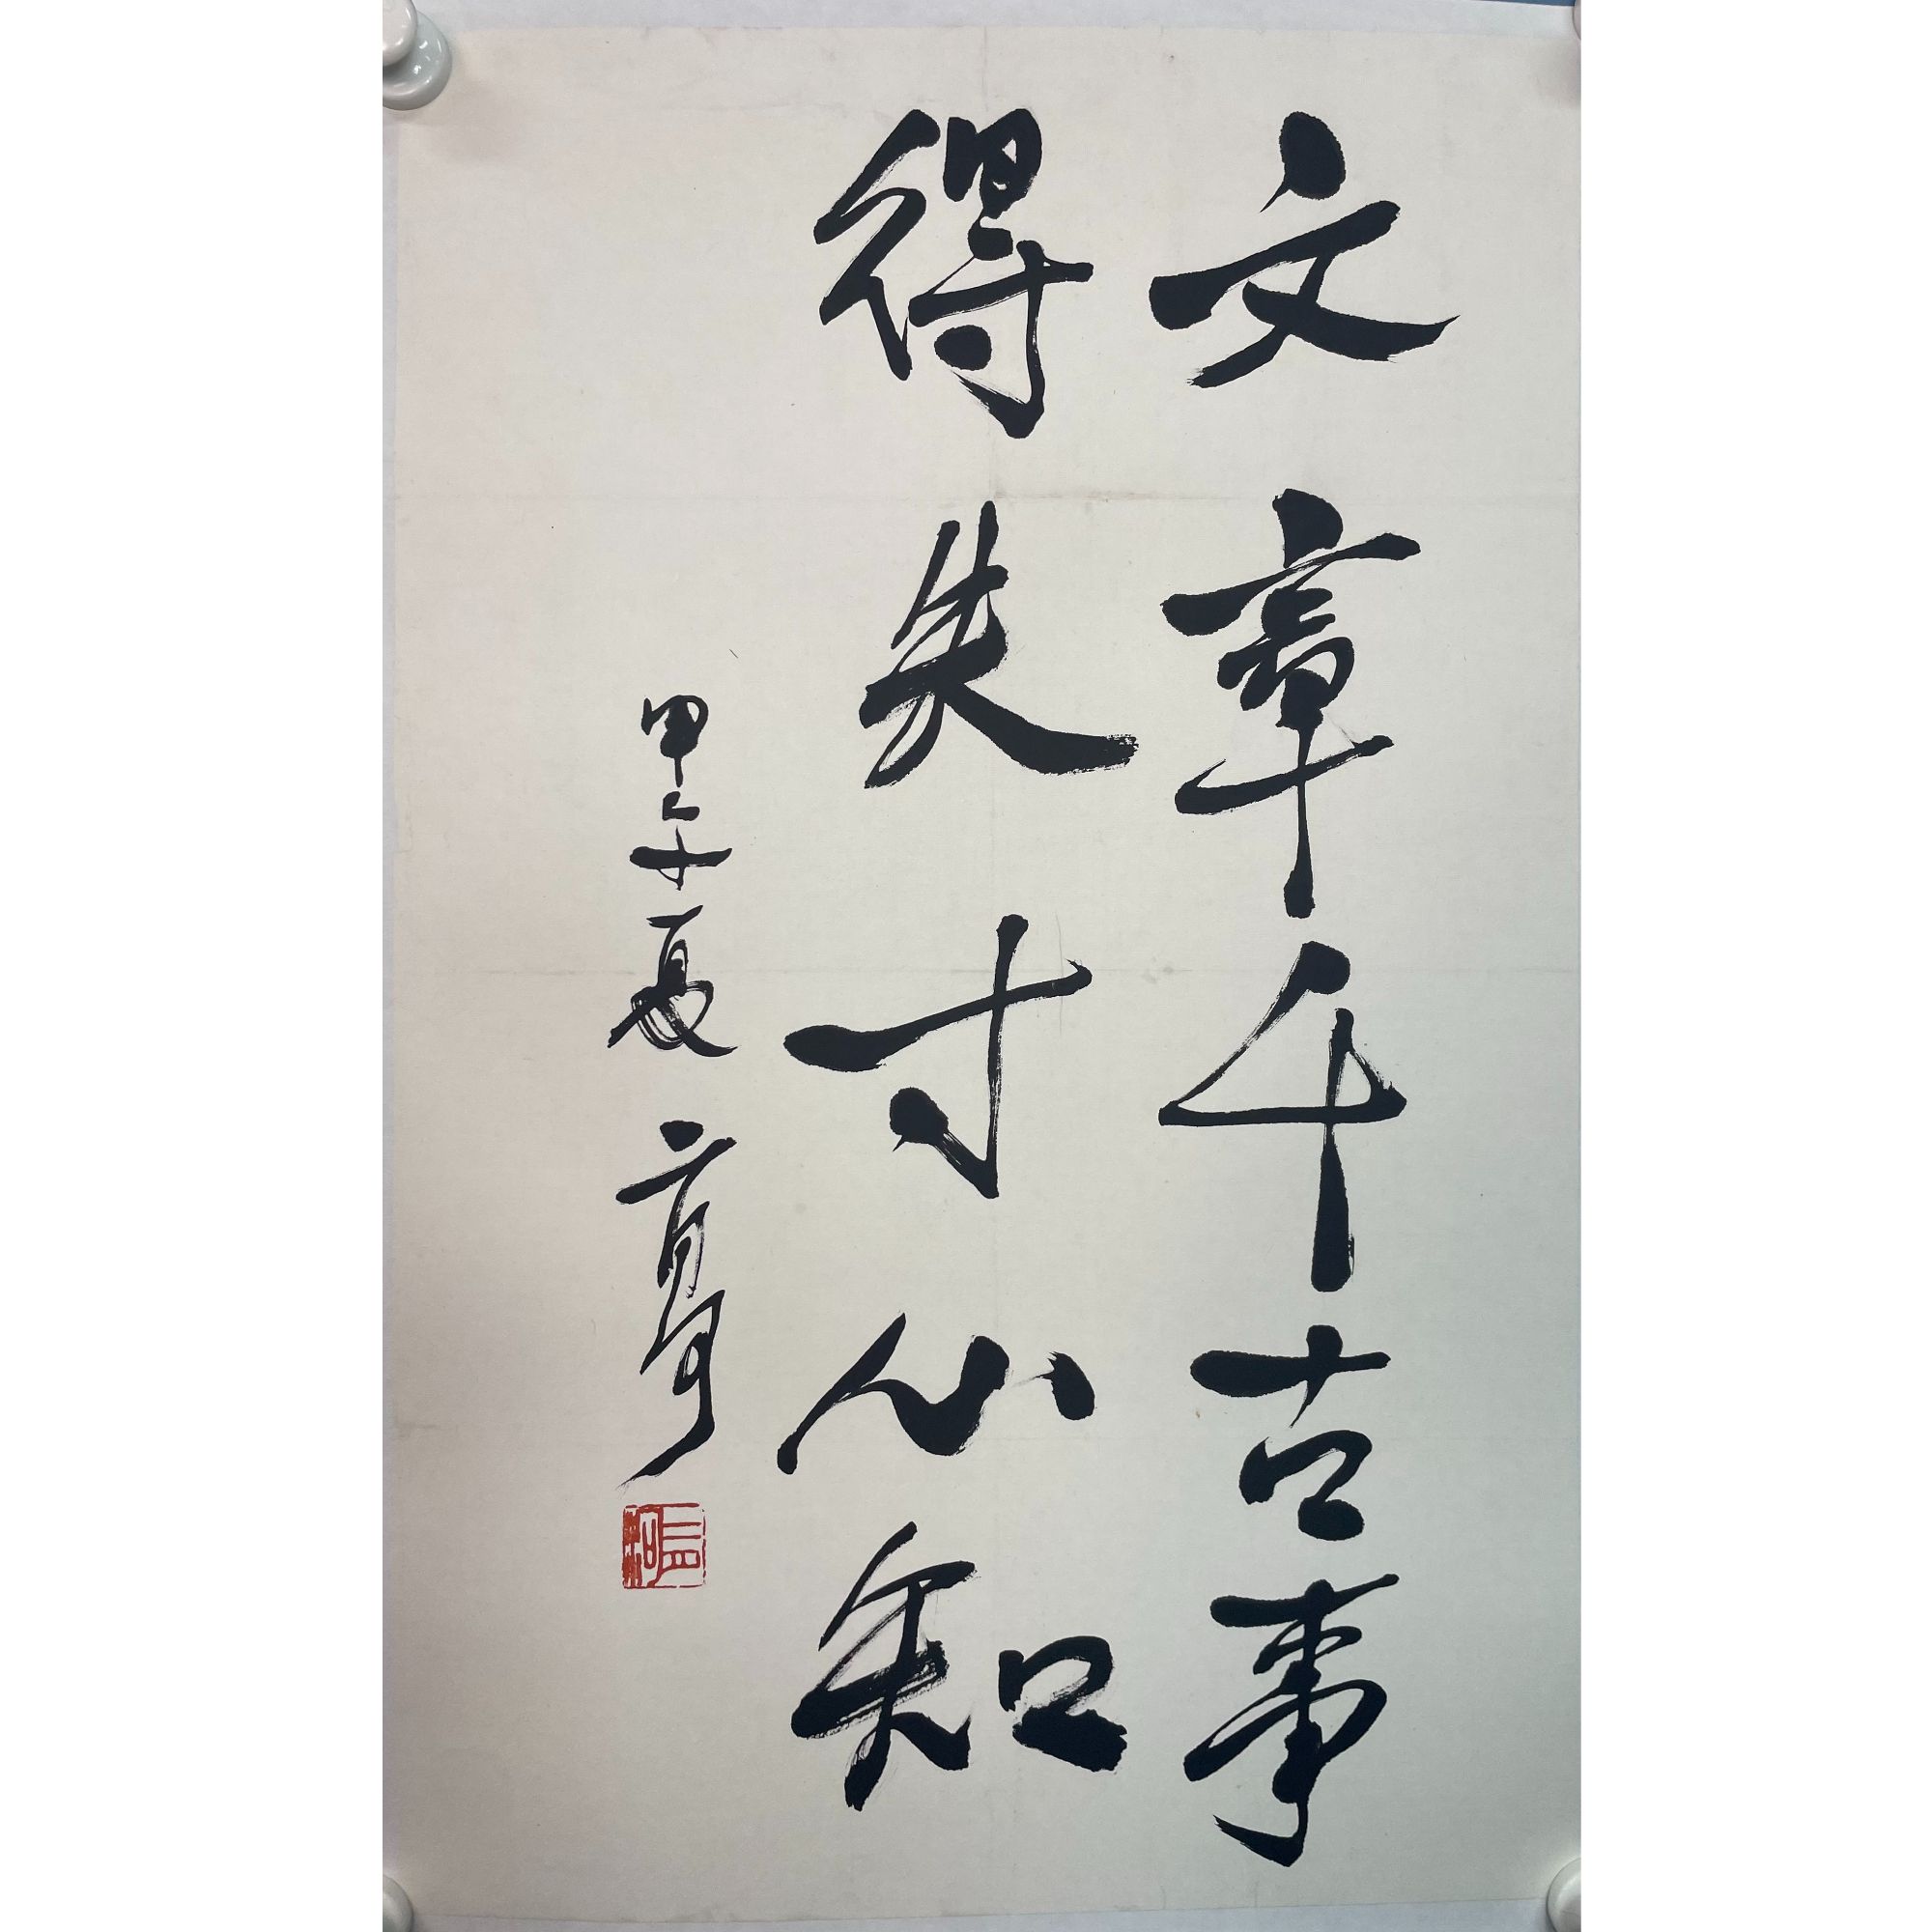 文章千古事
得失寸心知
甲午夏